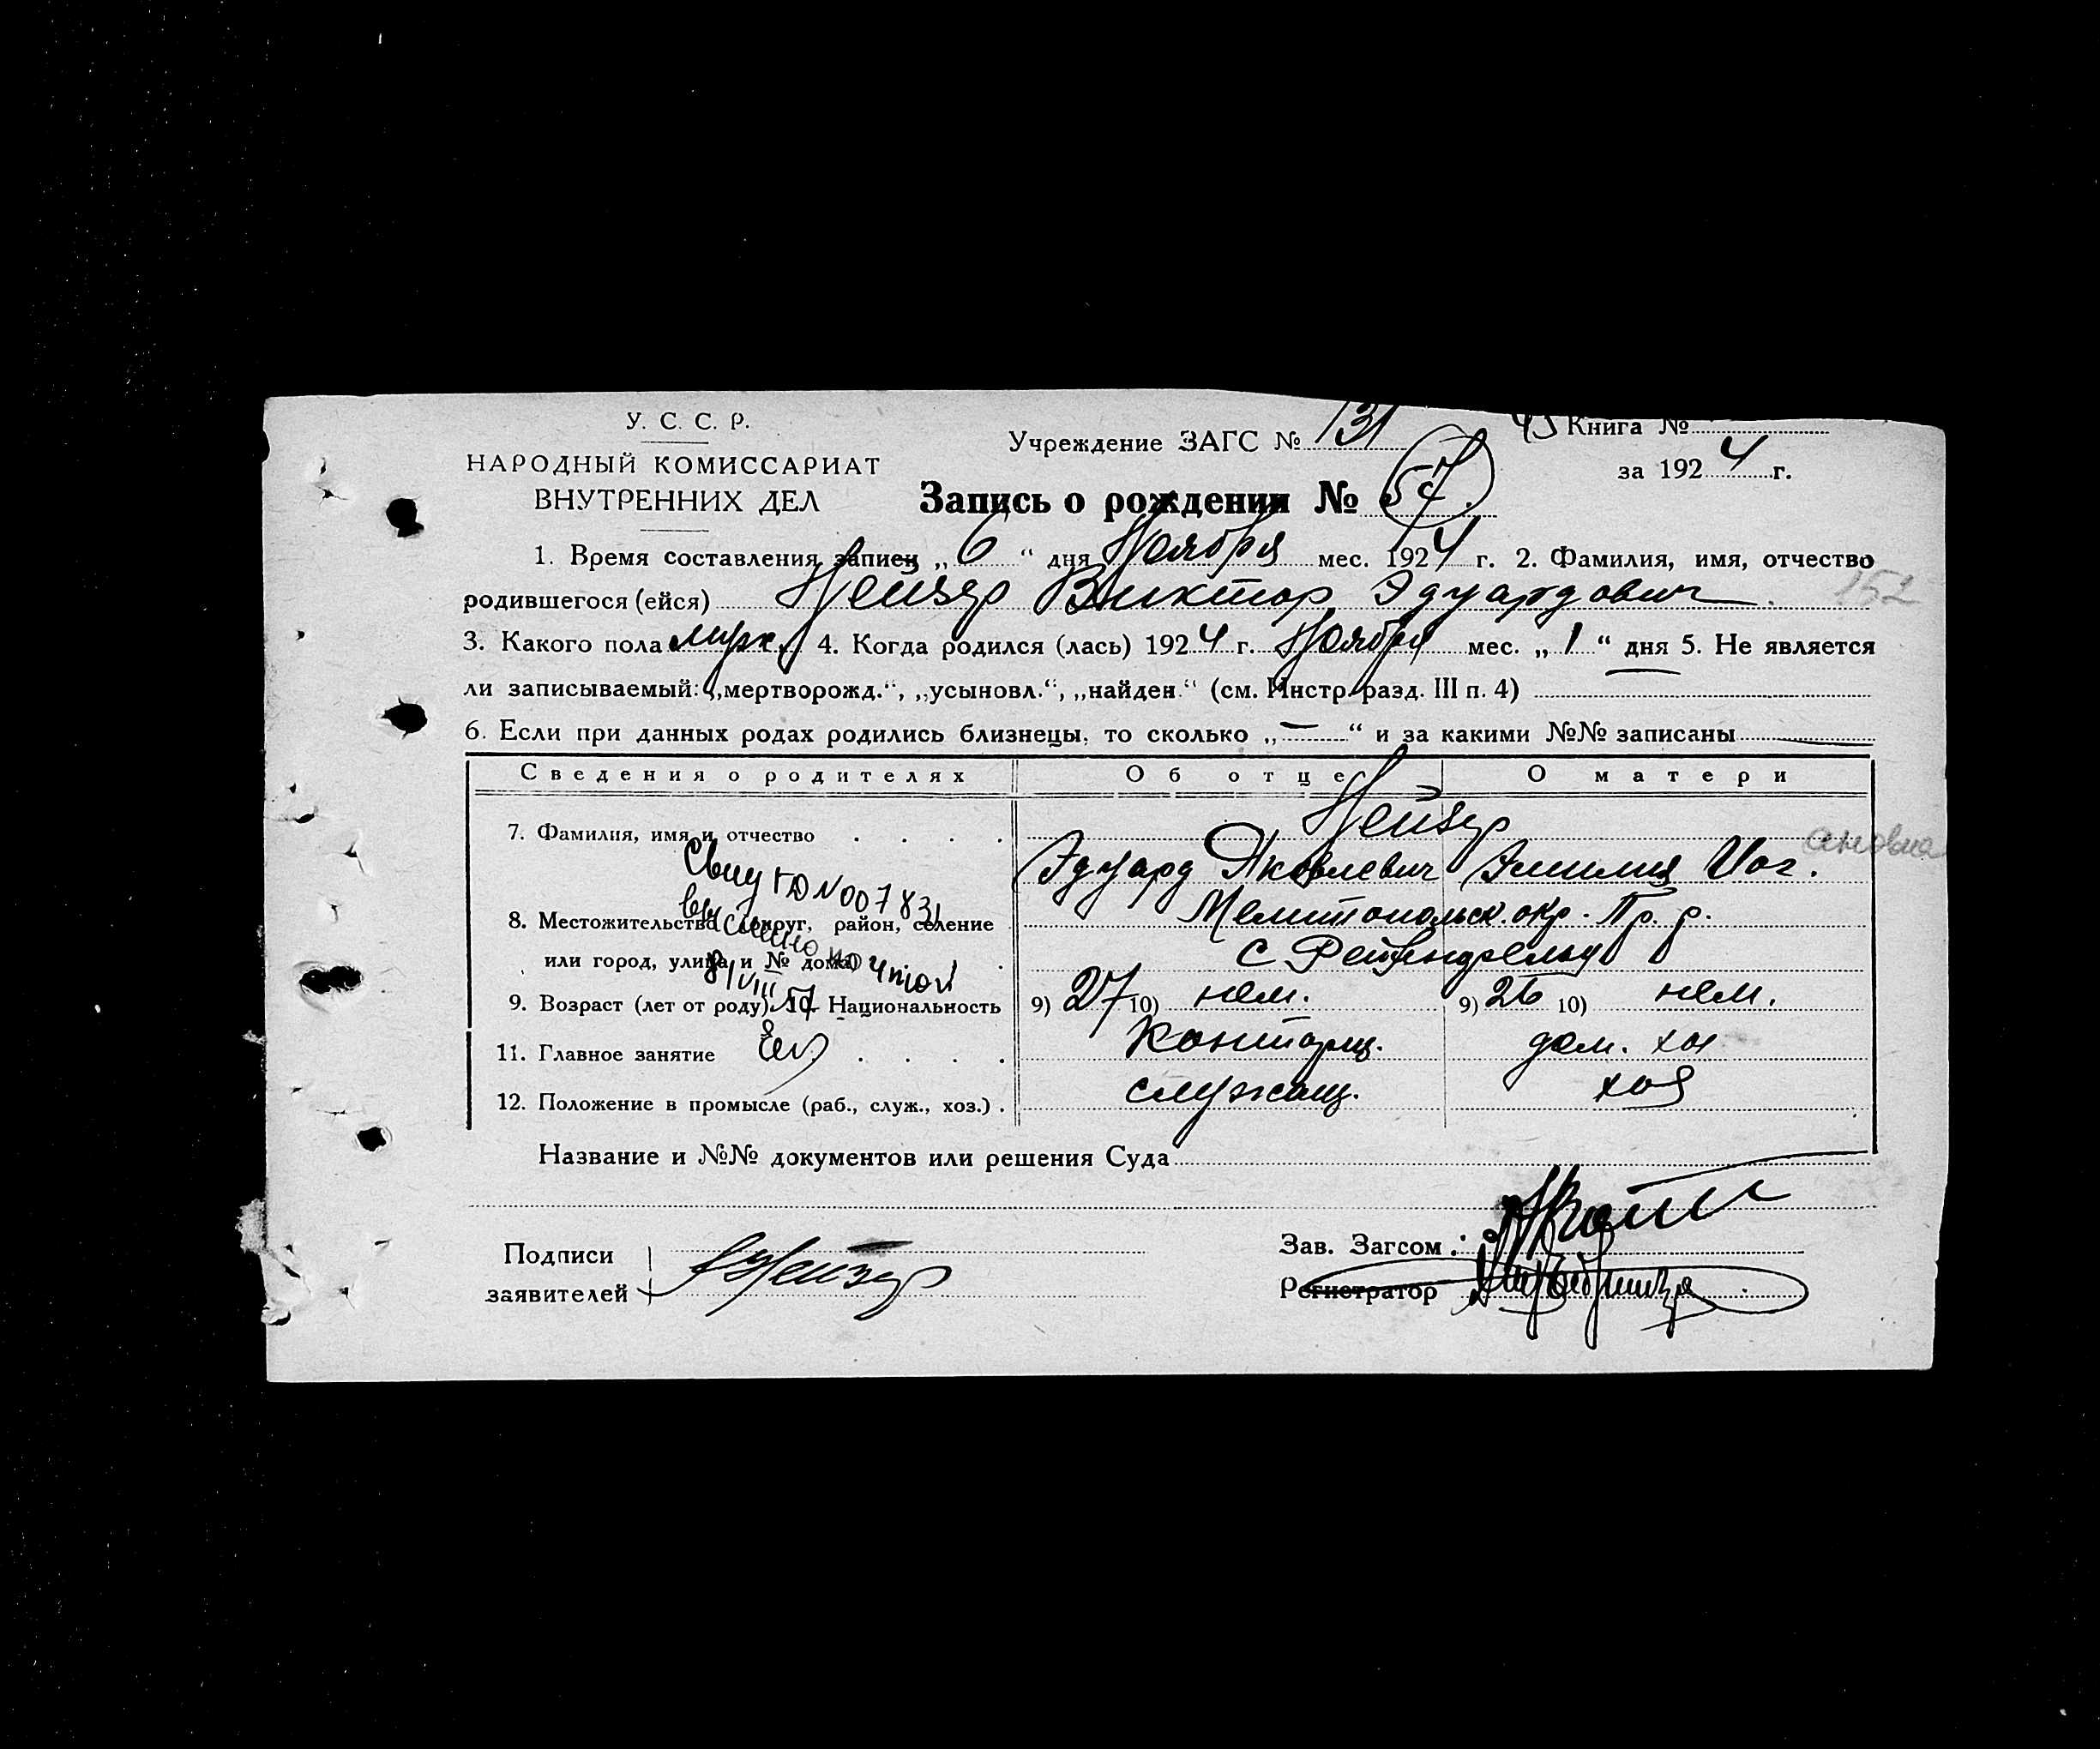 У. С. С. Р.
НАРОДНЫЙ КОМИССАРИАТ
ВНУТРЕННИХ ДЕЛ
Учреждение ЗАГС № 131
Книга №
за 1924 г.
Запись о рождении № 57
1. Время составления записи „6“ дня Ноября мес. 1924 г. 2. Фамилия, имя, отчество
родившегося (ейся) Нейзер Виктор Эдуардович. 152
3. Какого пола мужс. 4. Когда родился (лась) 1924 г. Ноября мес. „1“ дня 5. Не является
ли записываемый: „мертворожд.“, „усыновл.“, „найден.“ (см. Инстр. разд. III п. 4)
6. Если при данных родах родились близнецы, то сколько „—“ и за какими №№ записаны
Сведения о родителях Об отце О матери
7. Фамилия, имя и отчество Нейзер
Эдуард Яковлевич Эмилия Иог. ановна
Свид ГД N 007831
8. Местожительство округ, район, селение Мелитопольск. окр. Пр. р.
или город, улица и № дома с Рейхенфельд
почтой
8/VIII 57
9. Возраст (лет от роду) 10. Национальность 9) 27 10) нем. 9) 26 10) нем.
11. Главное занятие Конторщ. дом. хоз
12. Положение в промысле (раб., служ., хоз.) служащ. хоз
Название и №№ документов или решения Суда
Подписи заявителей Нейзер
Зав. Загсом:
Регистратор